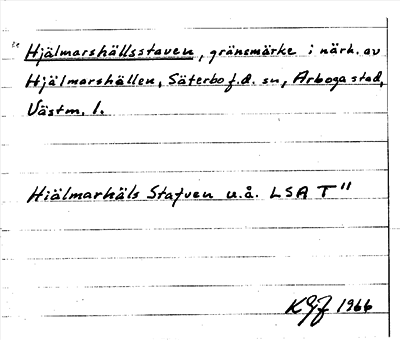 Hjälmarshällsstaven, gränsmärke i närh. av
Hjälmarshällen, Säterbo f.d. sn, Arboga stad,
Västm. l.
Hiälmarhäls Stafven u.å. LSA T"
KGF 1966